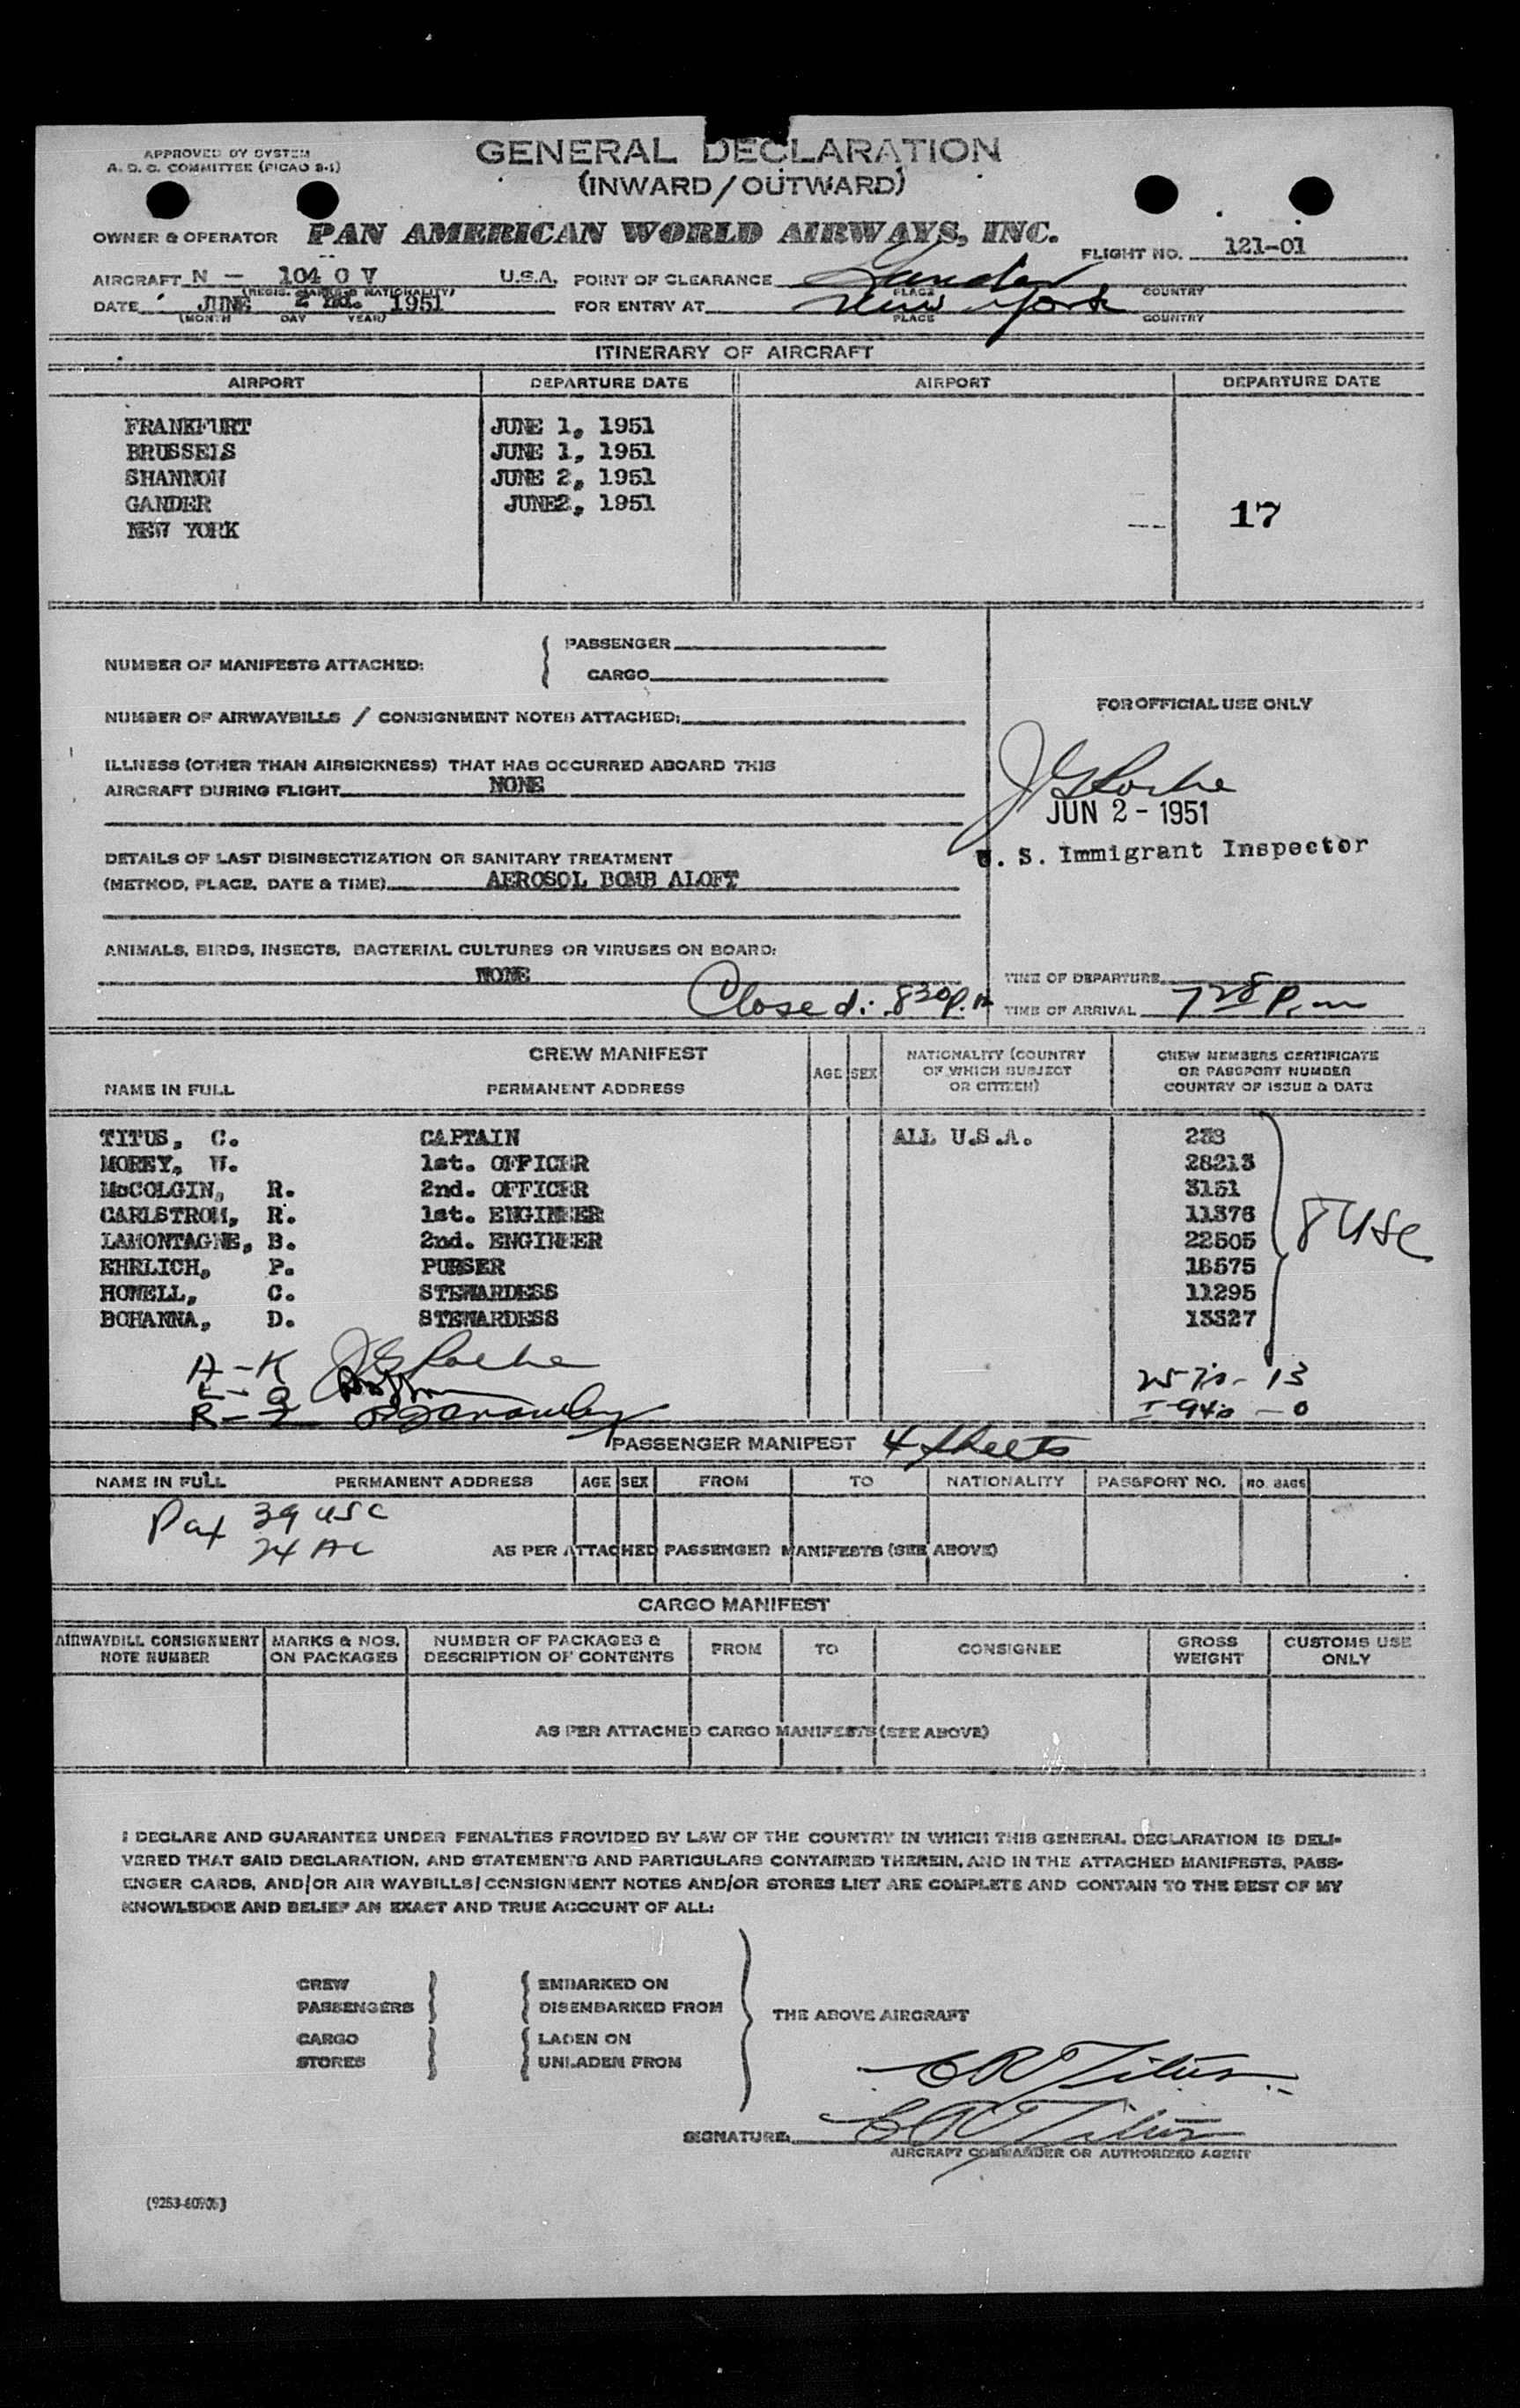 APPROVED BY SYSTEM
A. D. C. COMMITTEE (PICAO S-1)
GENERAL DECLARATION
(INWARD/OUTWARD)
OWNER & OPERATOR PAN AMERICAN WORLD AIRWAYS, INC.
FLIGHT NO. 121-01
AIRCRAFT N - 104 0 V U.S.A. POINT OF CLEARANCE Gander
(REGIS. MARKS & NATIONALITY) PLACE COUNTRY
DATE JUNE 2 nd. 1951 FOR ENTRY AT New York
(MONTH DAY YEAR) PLACE COUNTRY
ITINERARY OF AIRCRAFT
AIRPORT DEPARTURE DATE AIRPORT DEPARTURE DATE
FRANKFURT JUNE 1, 1951
BRUSSELS JUNE 1, 1951
SHANNON JUNE 2, 1951
GANDER JUNE2, 1951
17
NEW YORK
PASSENGER
NUMBER OF MANIFESTS ATTACHED:
CARGO
FOR OFFICIAL USE ONLY
NUMBER OF AIRWAYBILLS / CONSIGNMENT NOTES ATTACHED:
ILLNESS (OTHER THAN AIRSICKNESS) THAT HAS OCCURRED ABOARD THIS
AIRCRAFT DURING FLIGHT NONE
JUN 2 - 1951
U. S. Immigrant Inspector
DETAILS OF LAST DISINSECTIZATION OR SANITARY TREATMENT
(METHOD, PLACE, DATE & TIME) AEROSOL BOMB ALOFT
ANIMALS, BIRDS, INSECTS, BACTERIAL CULTURES OR VIRUSES ON BOARD:
NONE
TIME OF DEPARTURE
Closed: 830p.m
TIME OF ARRIVAL 728 P.m
CREW MANIFEST
NAME IN FULL PERMANENT ADDRESS AGE SEX NATIONALITY (COUNTRY OF WHICH SUBJECT OR CITIZEN) CREW MEMBERS CERTIFICATE OR PASSPORT NUMBER COUNTRY OF ISSUE & DATE
TITUS, C. CAPTAIN ALL U.S.A.
MOREY, W. 1st. OFFICER 28213
McCOLGIN, R. 2nd. OFFICER 3151
CARLSTROM, R. 1st. ENGINEER 11376
LAMONTAGNE, B. 2nd. ENGINEER 22505
8 USC
EHRLICH, P. PURSER 18575
HOWELL, C. STEWARDESS 11295
BOHANNA, D. STEWARDESS 13327
A-K
L-Q
R-Z
PASSENGER MANIFEST 4 sheets
NAME IN FULL PERMANENT ADDRESS AGE SEX FROM TO NATIONALITY PASSPORT NO. NO. BAGS
Pax 39 USC
24 AC
AS PER ATTACHED PASSENGER MANIFESTS (SEE ABOVE)
CARGO MANIFEST
AIRWAYBILL CONSIGNMENT NOTE NUMBER MARKS & NOS. ON PACKAGES NUMBER OF PACKAGES & DESCRIPTION OF CONTENTS FROM TO CONSIGNEE GROSS WEIGHT CUSTOMS USE ONLY
AS PER ATTACHED CARGO MANIFESTS (SEE ABOVE)
I DECLARE AND GUARANTEE UNDER PENALTIES PROVIDED BY LAW OF THE COUNTRY IN WHICH THIS GENERAL DECLARATION IS DELI-
VERED THAT SAID DECLARATION, AND STATEMENTS AND PARTICULARS CONTAINED THEREIN, AND IN THE ATTACHED MANIFESTS, PASS-
ENGER CARDS, AND/OR AIR WAYBILLS/CONSIGNMENT NOTES AND/OR STORES LIST ARE COMPLETE AND CONTAIN TO THE BEST OF MY
KNOWLEDGE AND BELIEF AN EXACT AND TRUE ACCOUNT OF ALL:
CREW EMBARKED ON
PASSENGERS DISEMBARKED FROM
THE ABOVE AIRCRAFT
CARGO LADEN ON
STORES UNLADEN FROM
CR Titus
SIGNATURE: CR Titus
AIRCRAFT COMMANDER OR AUTHORIZED AGENT